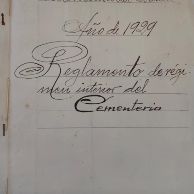 Año de 1939
Reglamento de régi-
men interior del
Cementerio